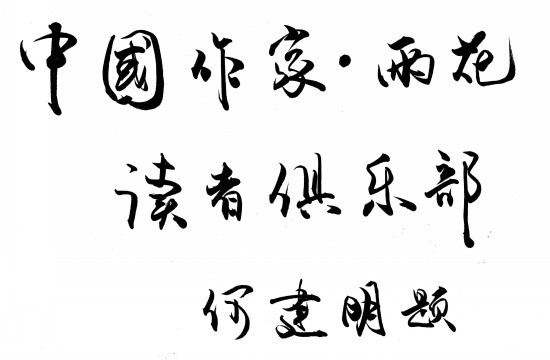 中國作家·雨花
读者俱乐部
何建明题